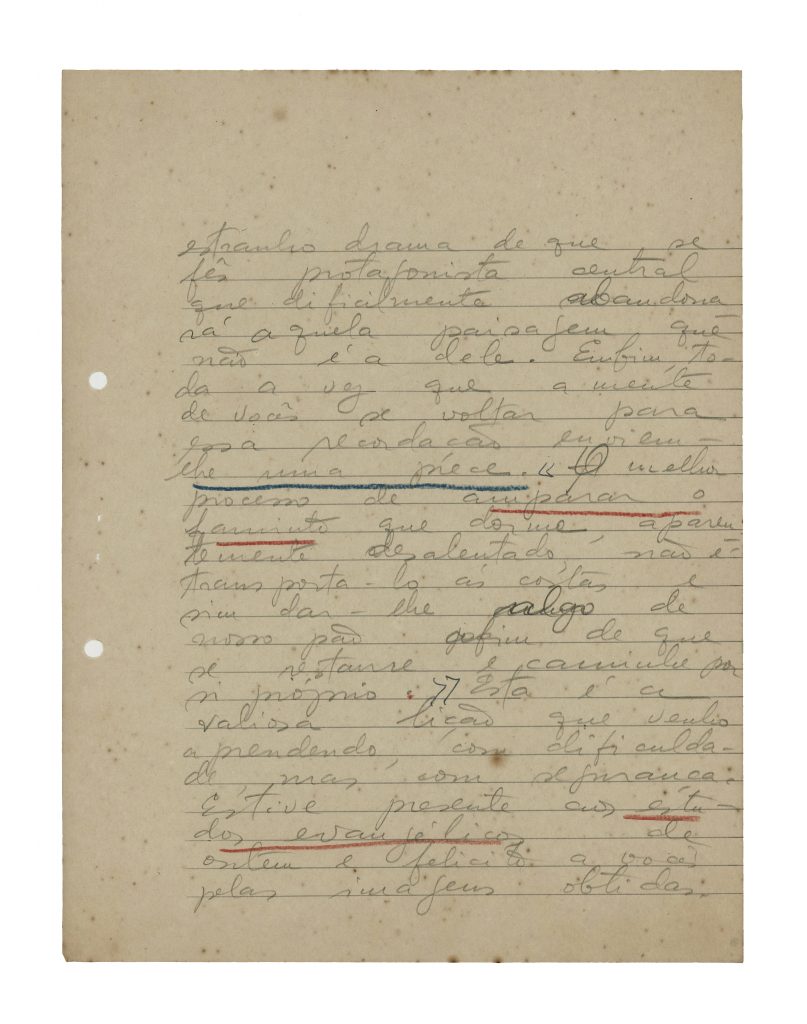 estranho drama de que se
fês protagonista central
que dificilmente abandona
rá aquela paisagem que
não é a dele. Emfim, to-
da a vez que a mente
de vocês se voltar para
essa recordação enviem-
lhe uma préce. « O melhor
processo de amparar o
faminto que dorme, aparen
temente desalentado, não é
transporta-lo ás costas e
sim dar-lhe algo de
nosso pão afim de que
se restaure e caminhe por
si próprio. » Esta é a
valiosa lição que venho
aprendendo, com dificulda-
de, mas com segurança.
Estive presente aos estu-
dos evangélicos de
ontem e felicito a vocês
pelas imagens obtidas.